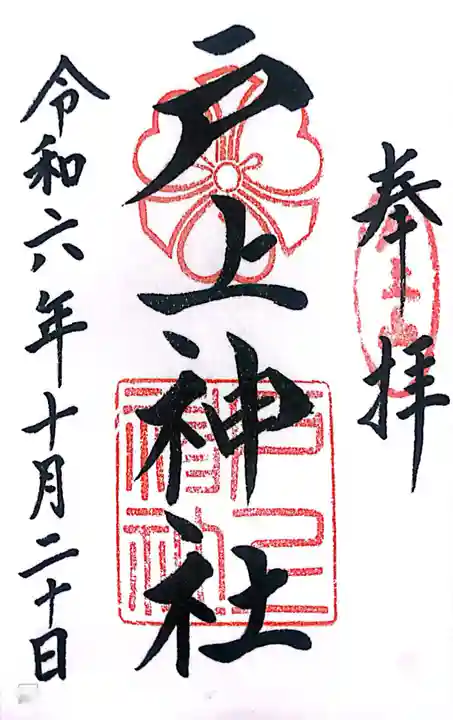 奉拝
戸上神社
令和六年十月二十日